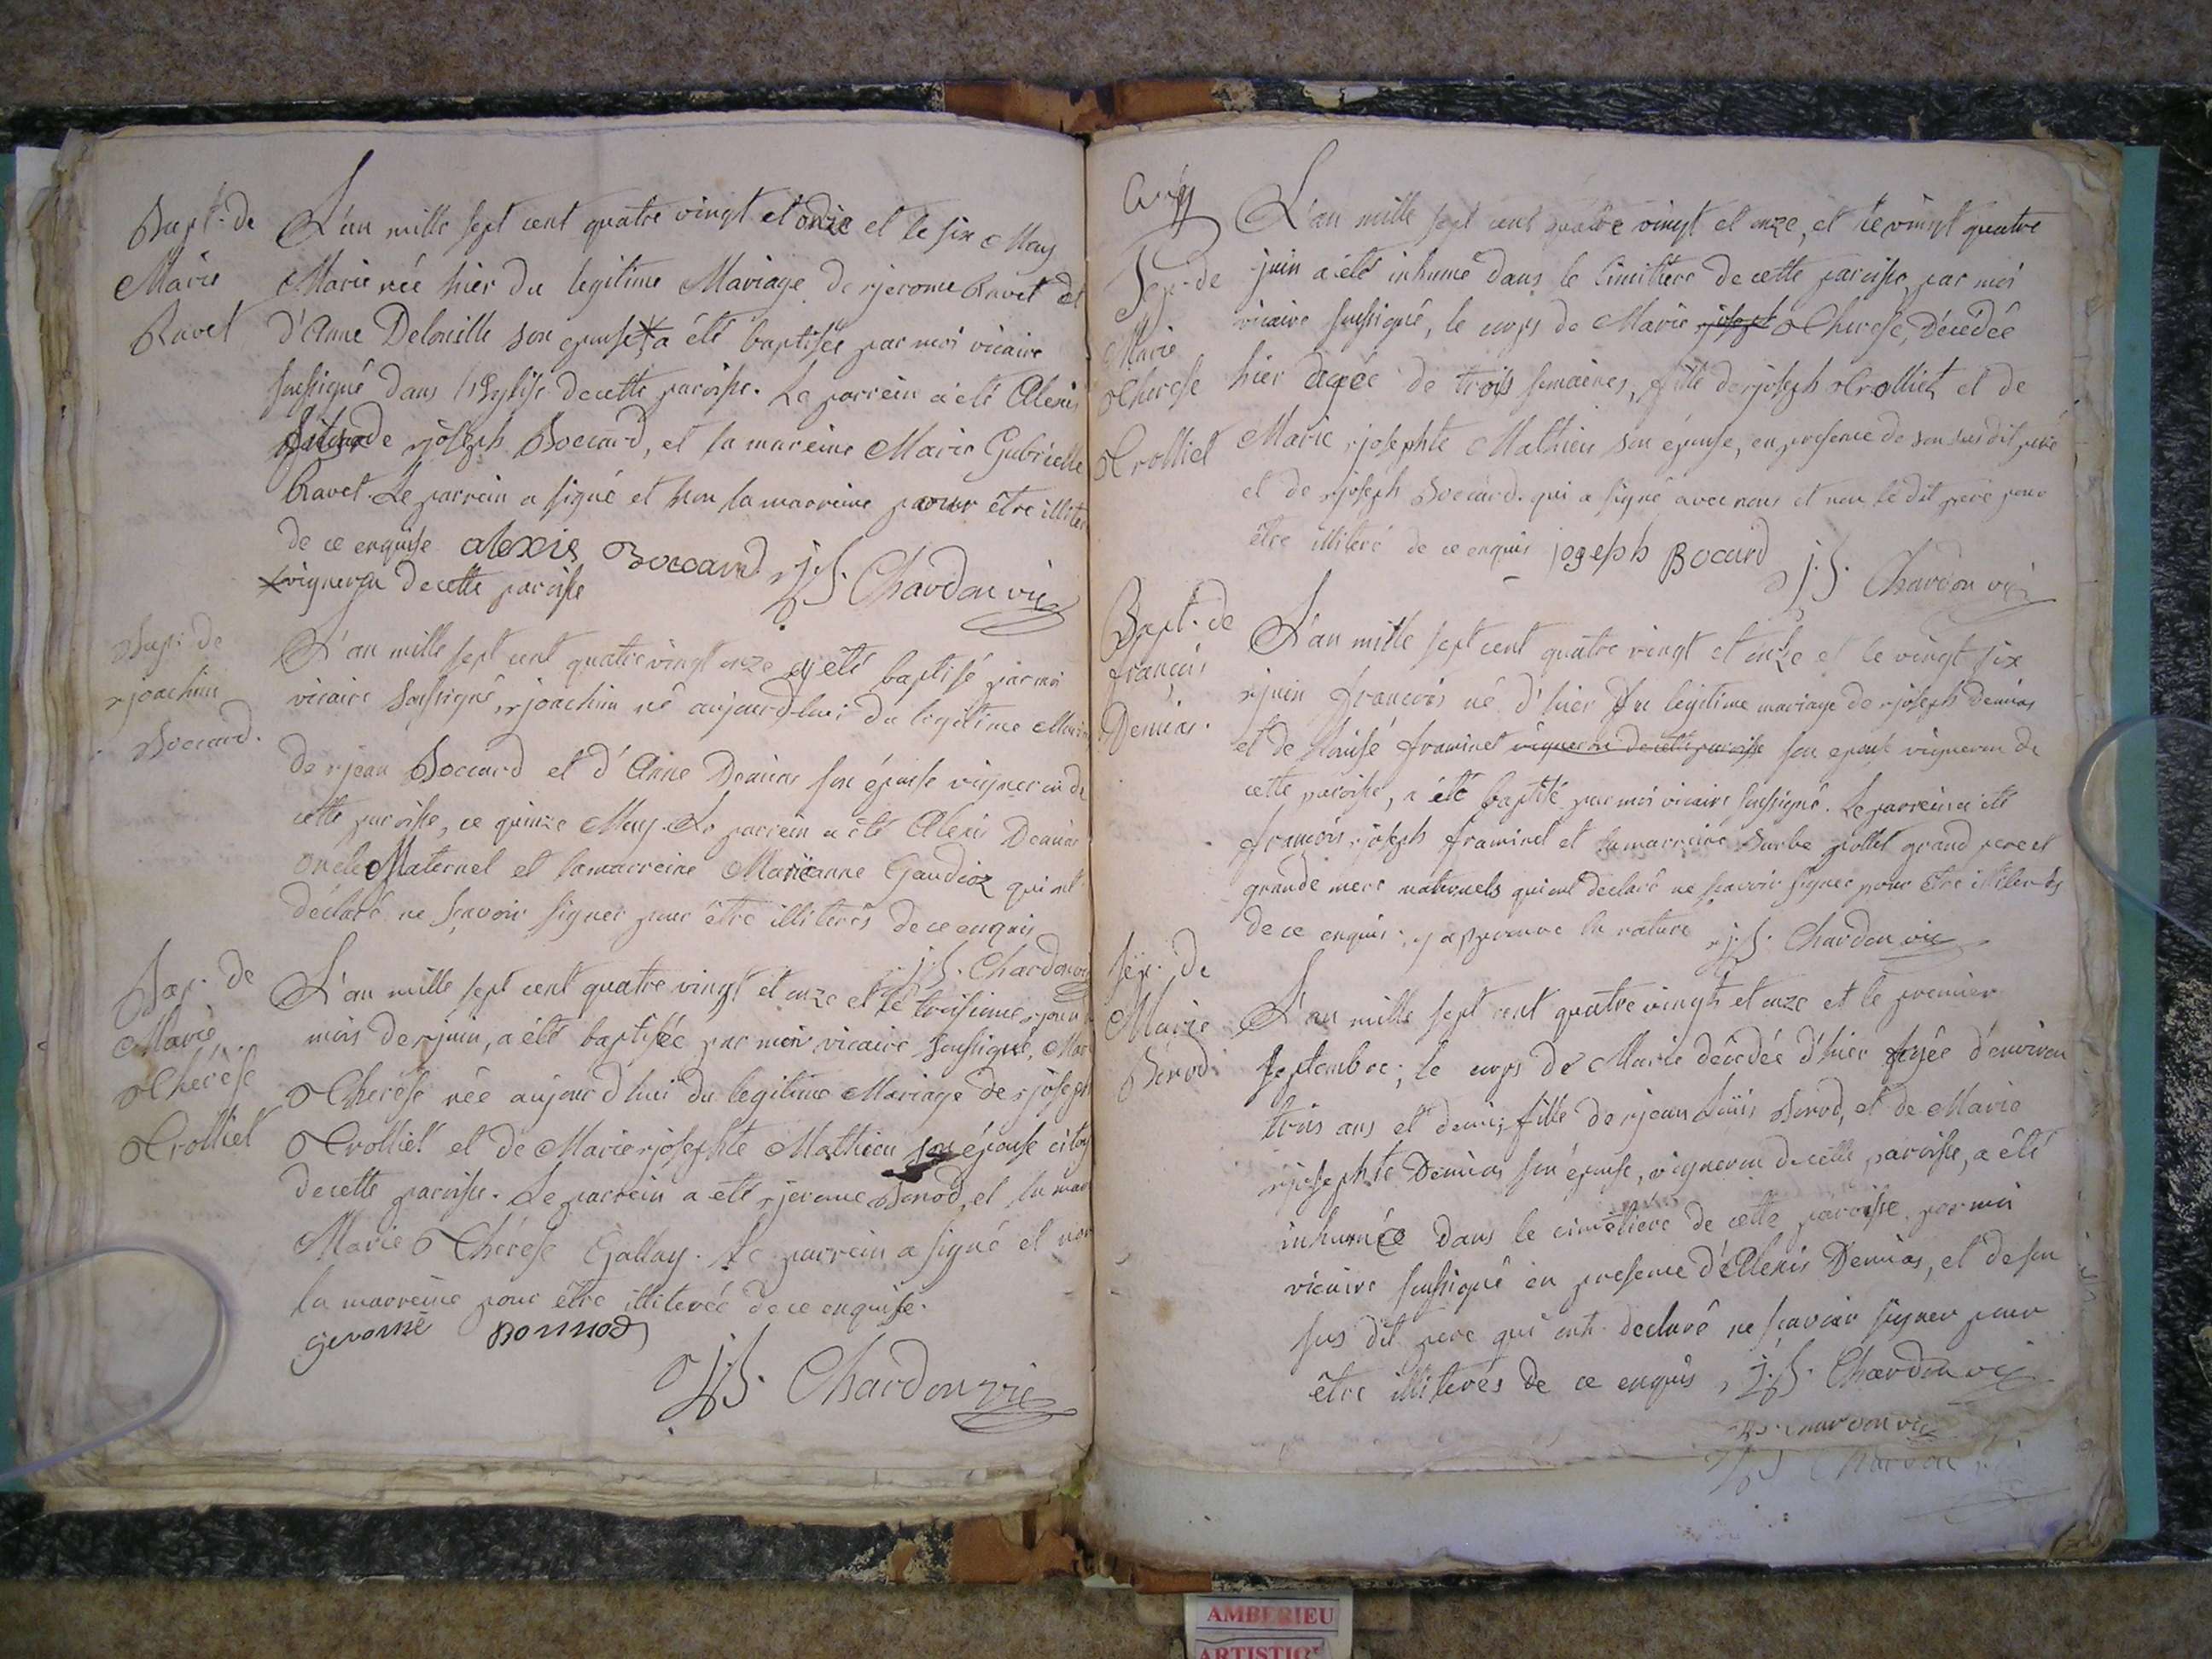 Bapt. de
Marie
Ravet
L'an mille sept cent quatre vingt et onze et le six May
Marie née hier du legitime Mariage de jerome Ravet et
d'Anne son epouse a été baptisée par moi vicaire
soussigné dans l'Eglise de cette paroisse. Le parrein a été Alexis
de joseph Boccard, et la mareine Marie Gabrielle
Ravet. Le parrein a signé et non la marreine pour être
de ce enquise alexis Boccard j. S. Chardon vic
vigneron de cette paroisse
Bap. de
joachim
Boccard.
L'an mille sept cent quatre vingt onze a été baptisé par moi
vicaire soussigné, joachim né aujourd'hui du legitime
de jean Boccard et d'Anne Demias son épouse vigneron de
cette paroisse, ce quinze May. Le parrein a été Alexis Demias
oncle Maternel et la marreine Marieanne Gaudioz qui ont
déclaré ne sçavoir signer pour être illiterés de ce enquis
j. S. Chardon vic
Bap. de
Marie
Therèse
Trolliet
L'an mille sept cent quatre vingt et onze et le troisieme jour
mois de juin, a été baptisée par moi vicaire soussigné,
Therèse née aujourd'hui du legitime Mariage de joseph
Trolliet et de Marie josephte Mathieu son épouse
de cette paroisse. Le parrein a été jerome Bonod, et la
Marie Thérèse Gallay. Le parrein a signé et non
la marreine pour être illiterée de ce enquise.
gerome Bonnod
j. S. Chardon vic
Sep. de
Marie
Therese
Trolliet
L'an mille sept cent quatre vingt et onze, et le vingt quatre
juin a été inhumé dans le Cimitiere de cette paroisse, par moi
vicaire soussigné, le corps de Marie joseph Therese, Décédée
hier agée de trois semaines, fille de joseph Trolliet, et de
Marie josephte Mathieu son épouse, en presence de son sus dit pere
et de joseph Boccard. qui a signé avec nous et non le dit pere pour
être illiteré de ce enquis joseph Bocard j. S. Chardon vic
Bapt. de
françois
Demias.
L'an mille sept cent quatre vingt et onze et le vingt six
juin françois né d'hier du legitime mariage de joseph Demias
et de Louise framinet vigneron de cette paroisse son epouse vigneron de
cette paroisse, a été baptisé par moi vicaire soussigné. Le parrein a été
françois joseph framinet et la marreine Barbe pollet grand pere et
grande mere maternels qui ont declaré ne sçavoir signer pour être
de ce enquis. j'approuve la rature j. S. Chardon vic
Sep. de
Marie
Bonod
L'an mille sept cent quatre vingt et onze et le premier
septembre; le corps de Marie décédée d'hier agée d'environ
trois ans et demi, fille de jean Louis Bonod, et de Marie
josephte Demias son épouse, vigneron de cette paroisse, a été
inhumée dans le cimetiere de cette paroisse par moi
vicaire soussigné en presence d'Alexis Demias, et de son
sus dit pere qui ont declaré ne sçavoir signer pour
être illiterés de ce enquis j. S. Chardon vic
Chardon vic
Chardon
AMBERIEU